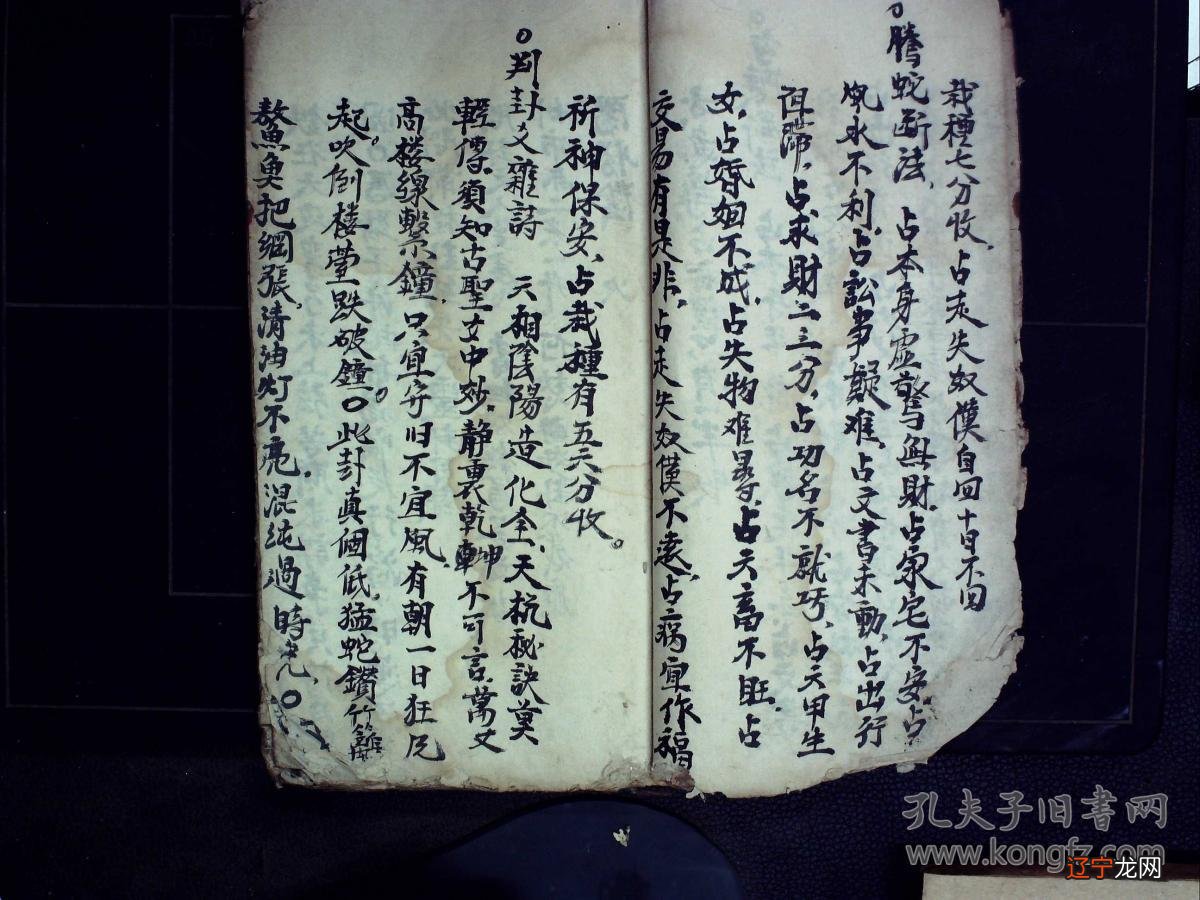 栽種七分收，占走失奴僕自回十日不回
○騰蛇斷法，占本身虛驚無財，占家宅不安，占
風水不利，占訟事疑难，占文書未動，占出行
阻滯，占求財二三分，占功名不就巧，占六甲生
女，占婚姻不成，占失物难尋，占六畜不旺，占
交易有是非，占走失奴僕不遠，占病宜作福
祈神保安，占栽種有五六分收。
○判卦爻雜詩 天相陰陽造化全，天机秘訣莫
輕傳，須知古聖爻中妙，静裏乾坤不可言，萬丈
高楼線繫鐘，只宜守旧不宜風，有朝一日狂風
起，吹倒楼臺跌破鐘。○此卦真個低，猛蛇鑽竹籬
鰲魚把網張，清油灯不亮，混沌過時光，○
孔夫子旧書网
www.kongfz.com
辽宁龙网